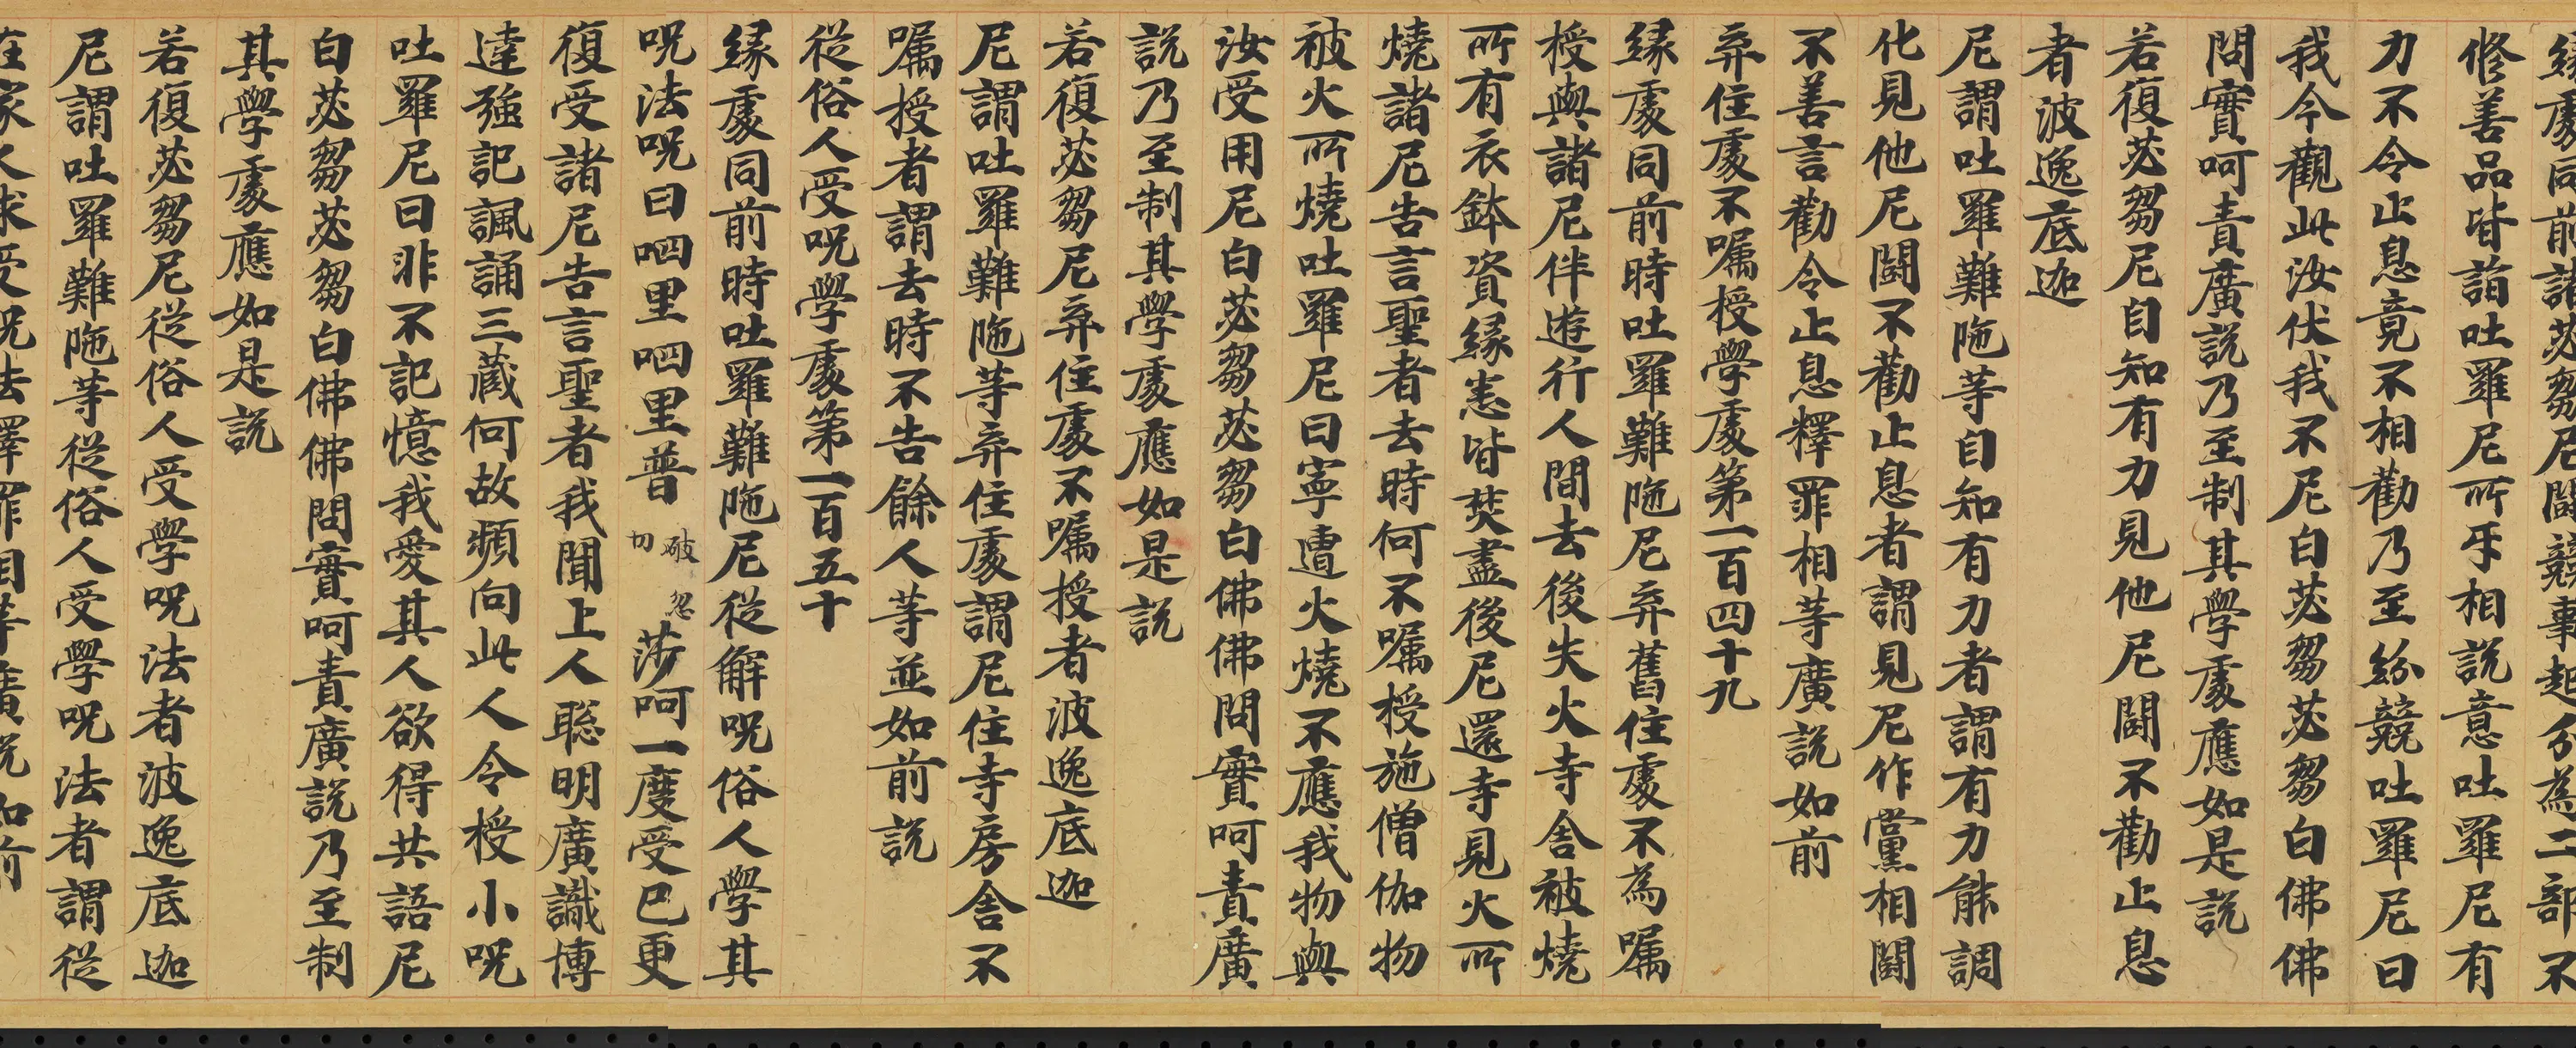 緣處同前諸苾芻尼鬪競事起分為二部不
修善品皆詣吐羅尼所乎相說意吐羅尼有
力不令止息竟不相勸乃至紛競吐羅尼曰
我今觀此汝伏我不尼白苾芻苾芻白佛佛
問實呵責廣說乃至制其學處應如是說
若復苾芻尼自知有力見他尼鬪不勸止息
者波逸底迦
尼謂吐羅難陁等自知有力者謂有力能調
化見他尼鬪不勸止息者謂見尼作黨相鬪
不善言勸令止息釋罪相等廣說如前
弃住處不囑授學處第一百四十九
緣處同前時吐羅難陁尼弃舊住處不為囑
授與諸尼伴遊行人間去後失火寺舍被燒
所有衣鉢資緣悉皆焚盡後尼還寺見火所
燒諸尼告言聖者去時何不囑授施僧伽物
被火所燒吐羅尼曰寧遭火燒不應我物與
汝受用尼白苾芻苾芻白佛佛問實呵責廣
說乃至制其學處應如是說
若復苾芻尼弃住處不囑授者波逸底迦
尼謂吐羅難陁等弃住處謂尼住寺房舍不
囑授者謂去時不告餘人等並如前說
從俗人受呪學處第一百五十
緣處同前時吐羅難陁尼從解呪俗人學其
呪法呪曰呬里呬里普破忽切莎呵一度受已更
復受諸尼告言聖者我聞上人聡明廣識博
達強記諷誦三藏何故頻向此人令授小呪
吐羅尼曰非不記憶我愛其人欲得共語尼
白苾芻苾芻白佛佛問實呵責廣說乃至制
其學處應如是說
若復苾芻尼從俗人受學呪法者波逸底迦
尼謂吐羅難陁等從俗人受學呪法者謂從
在家人求受呪法釋罪相等廣說如前